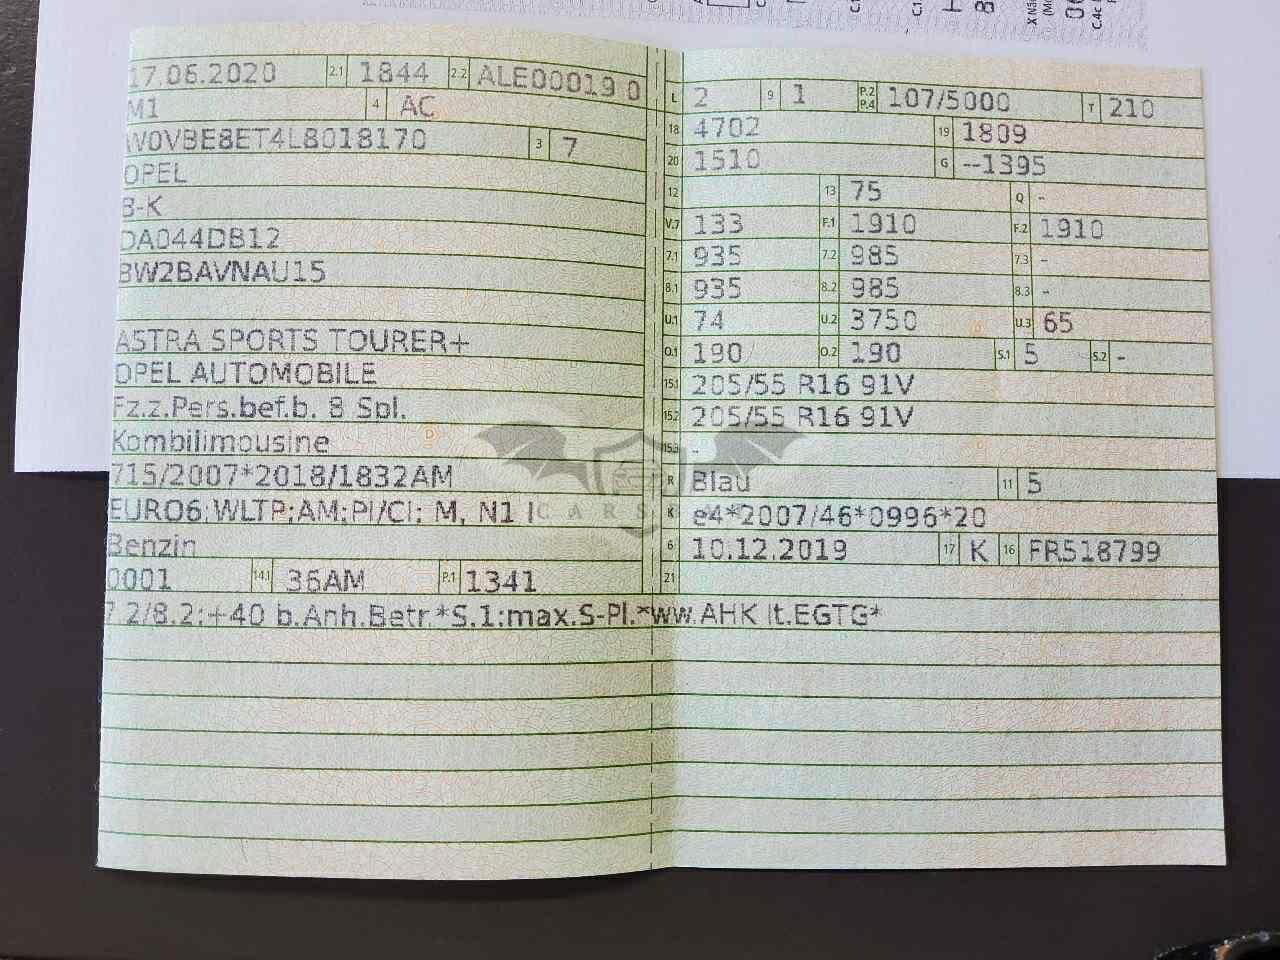 17.06.2020 2.1 1844 2.2 ALE00019 0
M1 4 AC
W0VBE8ET4L8018170 3 7
OPEL
B-K
DA044DB12
BW2BAVNAU15
ASTRA SPORTS TOURER+
OPEL AUTOMOBILE
Fz.z.Pers.bef.b. 8 Spl.
Kombilimousine
715/2007*2018/1832AM
EURO6;WLTP;AM;PI/CI; M, N1 I
Benzin
0001 14.1 36AM P.1 1341
7.2/8.2:+40 b.Anh.Betr.*S.1:max.S-Pl.*ww.AHK lt.EGTG*
L 2 9 1 P.2 P.4 107/5000 T 210
18 4702 19 1809
20 1510 G --1395
12 13 75 Q -
V.7 133 F.1 1910 F.2 1910
7.1 935 7.2 985 7.3 -
8.1 935 8.2 985 8.3 -
U.1 74 U.2 3750 U.3 65
O.1 190 O.2 190 S.1 5 S.2 -
15.1 205/55 R16 91V
15.2 205/55 R16 91V
15.3 -
R Blau 11 5
K e4*2007/46*0996*20
6 10.12.2019 17 K 16 FR518799
21
CARS